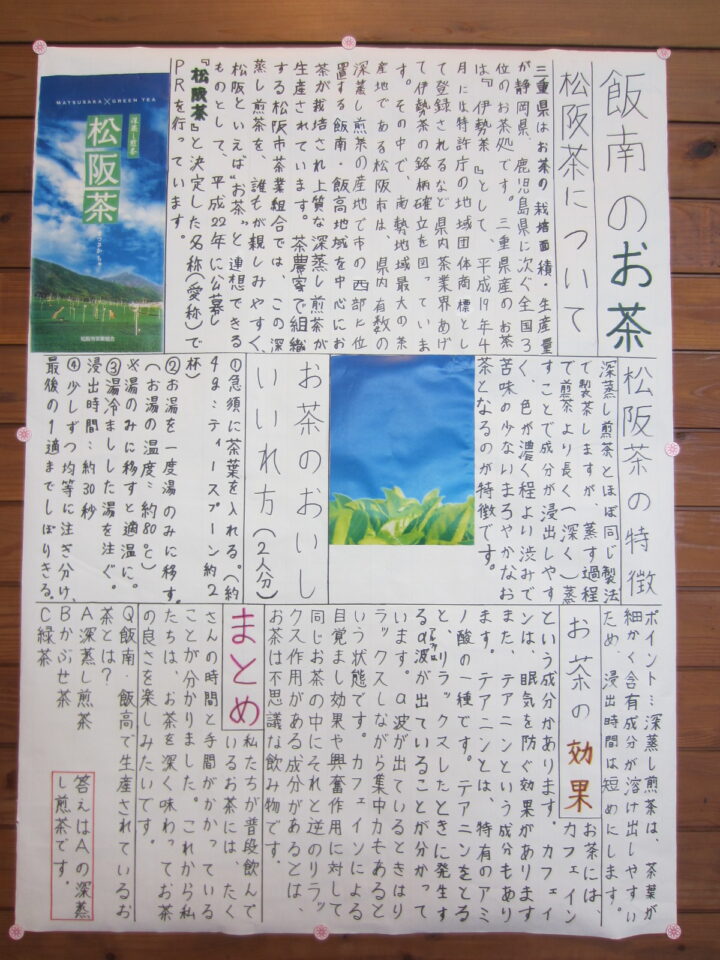 飯南のお茶
松阪茶について
三重県はお茶の栽培面積・生産量
が静岡県、鹿児島県に次ぐ全国3
位のお茶処です。三重県産のお茶
は『伊勢茶』として、平成19年4
月には特許庁の地域団体商標とし
て登録されるなど県内茶業界あげ
て伊勢茶の銘柄確立を図っていま
す。その中で、南勢地域最大の茶
産地である松阪市は、県内有数の
深蒸し煎茶の産地で市の西部に位
置する飯南・飯高地域を中心にお
茶が栽培され上質な深蒸し煎茶が
生産されています。茶農家で組織
する松阪市茶業組合では、この深
蒸し煎茶を、誰もが親しみやすく、
松阪といえば“お茶”と連想できる
ものとして、平成22年に公募し
『松阪茶』と決定した名称(愛称)で
PRを行っています。
MATSUSAKA×GREEN TEA
深蒸し煎茶
松阪茶
まつさかちゃ
松阪市茶業組合
松阪茶の特徴
深蒸し煎茶とほぼ同じ製法
で製茶しますが、蒸す過程
で煎茶より長く(深く)蒸
すことで成分が浸出しやす
く、色が濃く程よい渋みで
苦味の少ないまろやかなお
茶となるのが特徴です。
お茶のおいし
いいれ方(2人分)
①急須に茶葉を入れる。(約
4g:ティースプーン約2
杯)
②お湯を一度湯のみに移す。
(お湯の温度:約80と)
※湯のみに移すと適温に。
③湯冷ましした湯を注ぐ。
浸出時間:約30秒
④少しずつ均等に注ぎ分け、
最後の1適までしぼりきる。
ポイント…深蒸し煎茶は、茶葉が
細かく含有成分が溶け出しやすい
ため、浸出時間は短めにします。
お茶の効果
お茶には、
カフェイン
という成分があります。カフェイ
ンは、眠気を防ぐ効果があります
また、テアニンという成分もあり
ます。テアニンとは、特有のアミ
ノ酸の一種です。テアニンをとる
とリラックスしたときに発生す
るα波が出ていることが分かって
アルファ
います。α波が出ているときはり
ラックスしながら集中力もあると
いう状態です。カフェインによる
目覚まし効果や興奮作用に対して
同じお茶の中にそれと逆のリラッ
クス作用がある成分があるとは、
お茶は不思議な飲み物です。
まとめ
私たちが普段飲んで
いるお茶には、たく
さんの時間と手間がかかっている
ことが分かりました。これから私
たちは、お茶を深く味わってお茶
の良さを楽しみたいです。
Q飯南・飯高で生産されているお
茶とは?
A深蒸し煎茶
Bかぶせ茶
C緑茶
答えはAの深蒸
し煎茶です。